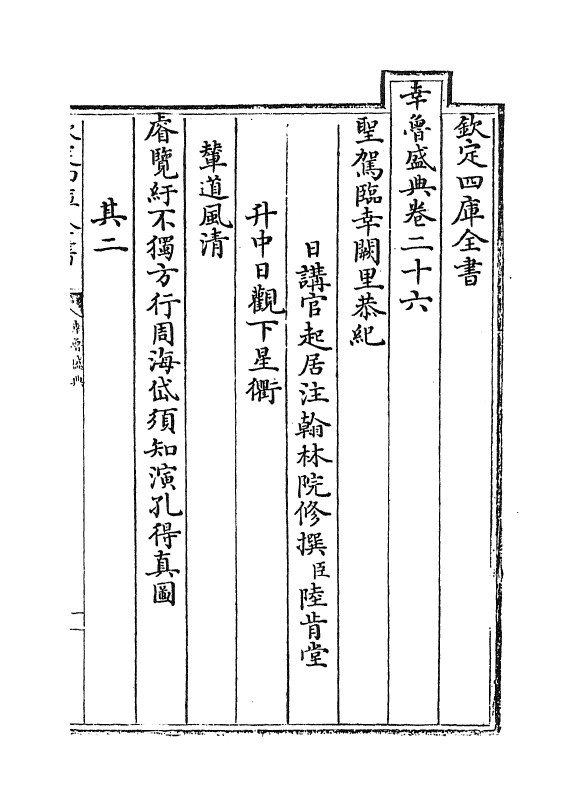 欽定四庫全書
幸魯盛典卷二十六
聖駕臨幸闕里恭紀
日講官起居注翰林院修撰臣陸肯堂
升中日觀下星衢
輦道風清
睿覽紆不獨方行周海岱須知演孔得真圖
其二
幸魯盛典
一